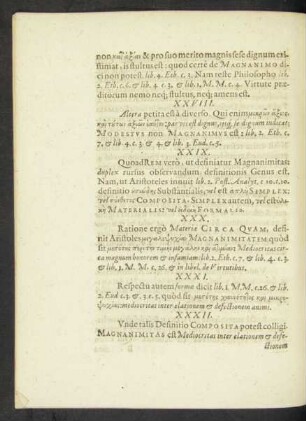 non κατ' ἀξίαν & pro suo merito magnis sese dignum exi-
stimat, is stultus est: quod certè de MAGNANIMO di-
ci non potest. lib. 4. Eth. c. 3. Nam teste Philosopho lib.
2. Eth. c. 6. & lib. 4. c. 3. & lib. 1. M. M. c. 4. Virtute præ-
ditorum nemo neq; stultus, neq; amens est.
XXVIII.
Altera petita est à diverso. Qui enim
est dignus, atq; se dignum indicat:
MODESTUS non MAGNANIMUS est: lib. 2. Eth. c.
7. & lib. 4. c. 3. & 4. & lib. 3. Eud. c. 5.
XXIX.
Quoad REM verò, ut definiatur Magnanimitas:
duplex rursus observandum, definitionis Genus est.
Nam, ut Aristoteles innuit lib. 2. Post. Analyt. c. 10.
definitio Substantialis; vel est SIMPLEX:
vel COMPOSITA. SIMPLEX autem, vel est
MATERIALIS: vel FORMALIS.
XXX.
Ratione ergò Materiæ CIRCA QVAM, defi-
nit Aristoteles MAGNANIMITATEM; quòd
sit Mediocritas cir-
ca magnum honorem & infamiam: lib. 2. Eth. c. 7. & lib. 4. c. 3.
& lib. 1. M. M. c. 26. & in libel. de Virtutibus.
XXXI.
Respectu autem formæ dicit lib. 1. M. M. c. 26. & lib.
2. Eud. c. 3. & 3. c. 5. quòd sit
mediocritas inter elationem & defectionem animi.
XXXII.
Vnde talis Definitio COMPOSITA potest colligi.
MAGNANIMITAS est Mediocritas inter elationem & defe-
ctionem